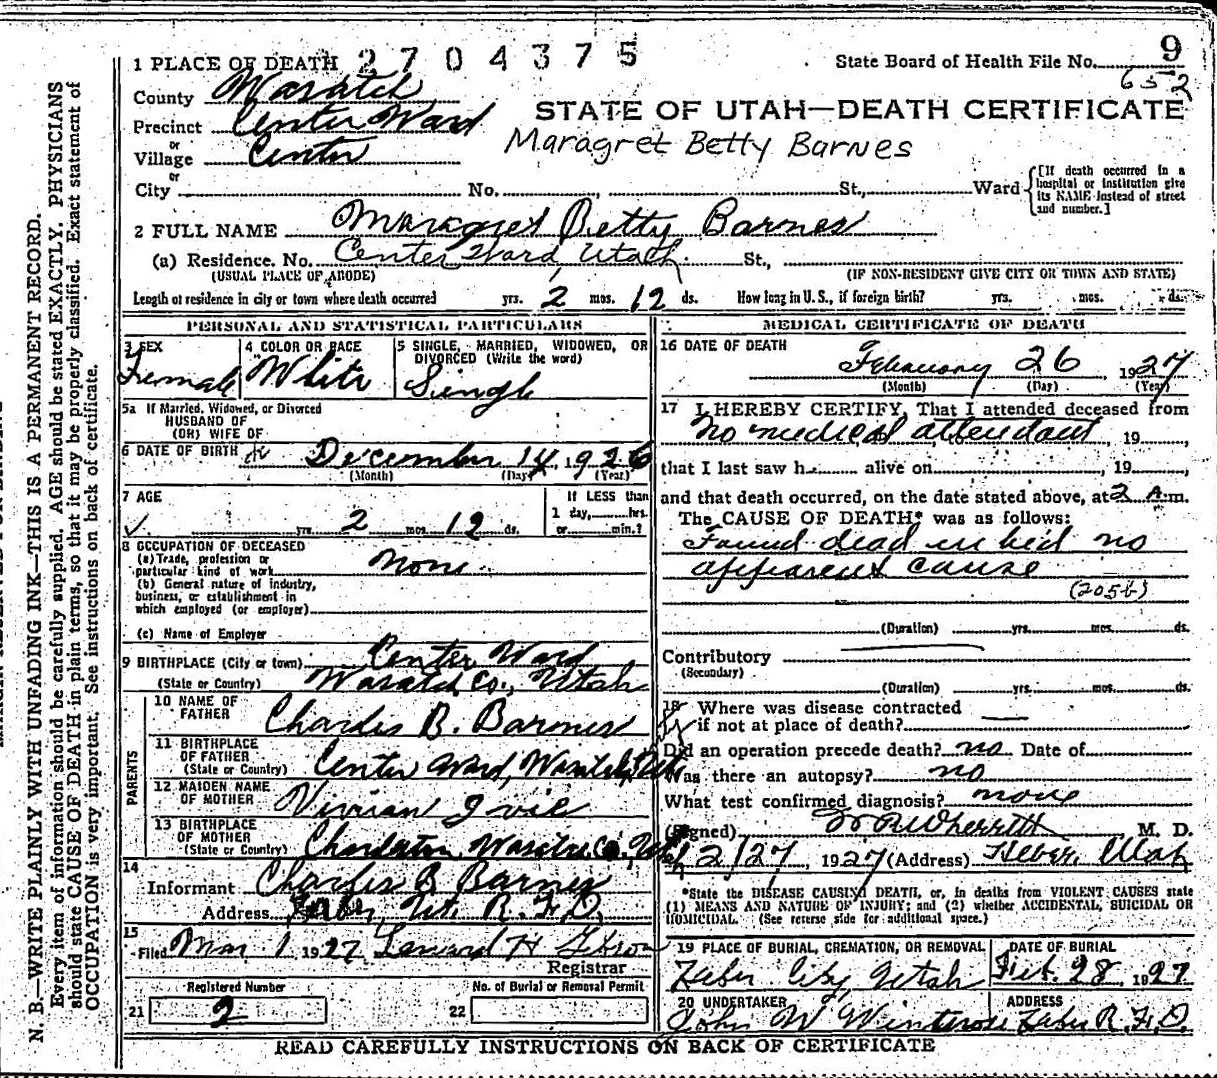 2704375
9
1 PLACE OF DEATH
State Board of Health File No.
652
County Wasatch
STATE OF UTAH—DEATH CERTIFICATE
Precinct Center Ward
Maragret Betty Barnes
or
Village Center
or
City No. St., Ward
[If death occurred in a hospital or institution give its NAME instead of street and number.]
2 FULL NAME Maragret Betty Barnes
(a) Residence. No. Center Ward Utah. St.,
(USUAL PLACE OF ABODE) (IF NON-RESIDENT GIVE CITY OR TOWN AND STATE)
Length of residence in city or town where death occurred yrs. 2 mos. 12 ds. How long in U.S., if foreign birth? yrs. mos. ds.
PERSONAL AND STATISTICAL PARTICULARS
3 SEX
Female
4 COLOR OR RACE
White
5 SINGLE, MARRIED, WIDOWED, OR DIVORCED (Write the word)
Single
5a If Married, Widowed, or Divorced
HUSBAND OF
(OR) WIFE OF
6 DATE OF BIRTH December 14, 1926
(Month) (Day) (Year)
7 AGE
yrs. 2 mos. 12 ds.
If LESS than
1 day, hrs.
or min.?
8 OCCUPATION OF DECEASED
(a) Trade, profession or
particular kind of work None
(b) General nature of industry,
business, or establishment in
which employed (or employer)
(c) Name of Employer
9 BIRTHPLACE (City or town) Center Ward
(State or Country) Wasatch Co., Utah
PARENTS
10 NAME OF
FATHER Charles B. Barnes
11 BIRTHPLACE
OF FATHER
(State or Country) Center Ward, Wasatch, Ut
12 MAIDEN NAME
OF MOTHER Vivian Ivie
13 BIRTHPLACE
OF MOTHER
(State or Country) Charleston, Wasatch Co., Utah
14
Informant Charles B Barnes
Address Heber, Ut. R.F.D.
15
Filed Mar 1 1927
Registrar
Registered Number
21 2
No. of Burial or Removal Permit
22
MEDICAL CERTIFICATE OF DEATH
16 DATE OF DEATH
February 26, 1927
(Month) (Day) (Year)
17 I HEREBY CERTIFY, That I attended deceased from
No medical attendant, 19
that I last saw h alive on , 19
and that death occurred, on the date stated above, at 2 A.m.
The CAUSE OF DEATH* was as follows:
Found dead in bed no
apparent cause
(205b)
(Duration) yrs. mos. ds.
Contributory
(Secondary)
(Duration) yrs. mos. ds.
18 Where was disease contracted
if not at place of death?
Did an operation precede death? no Date of
Was there an autopsy? no
What test confirmed diagnosis? none
(Signed) W R Wherritt M. D.
2/27, 1927 (Address) Heber, Utah
*State the DISEASE CAUSING DEATH, or, in deaths from VIOLENT CAUSES state
(1) MEANS AND NATURE OF INJURY; and (2) whether ACCIDENTAL, SUICIDAL OR
HOMICIDAL. (See reverse side for additional space.)
19 PLACE OF BURIAL, CREMATION, OR REMOVAL
Heber City, Utah
DATE OF BURIAL
Feb. 28, 1927
20 UNDERTAKER
John W Winterose
ADDRESS
Heber R.F.D.
READ CAREFULLY INSTRUCTIONS ON BACK OF CERTIFICATE
N. B.—WRITE PLAINLY WITH UNFADING INK—THIS IS A PERMANENT RECORD.
Every item of information should be carefully supplied. AGE should be stated EXACTLY. PHYSICIANS
should state CAUSE OF DEATH in plain terms, so that it may be properly classified. Exact statement of
OCCUPATION is very important. See instructions on back of certificate.